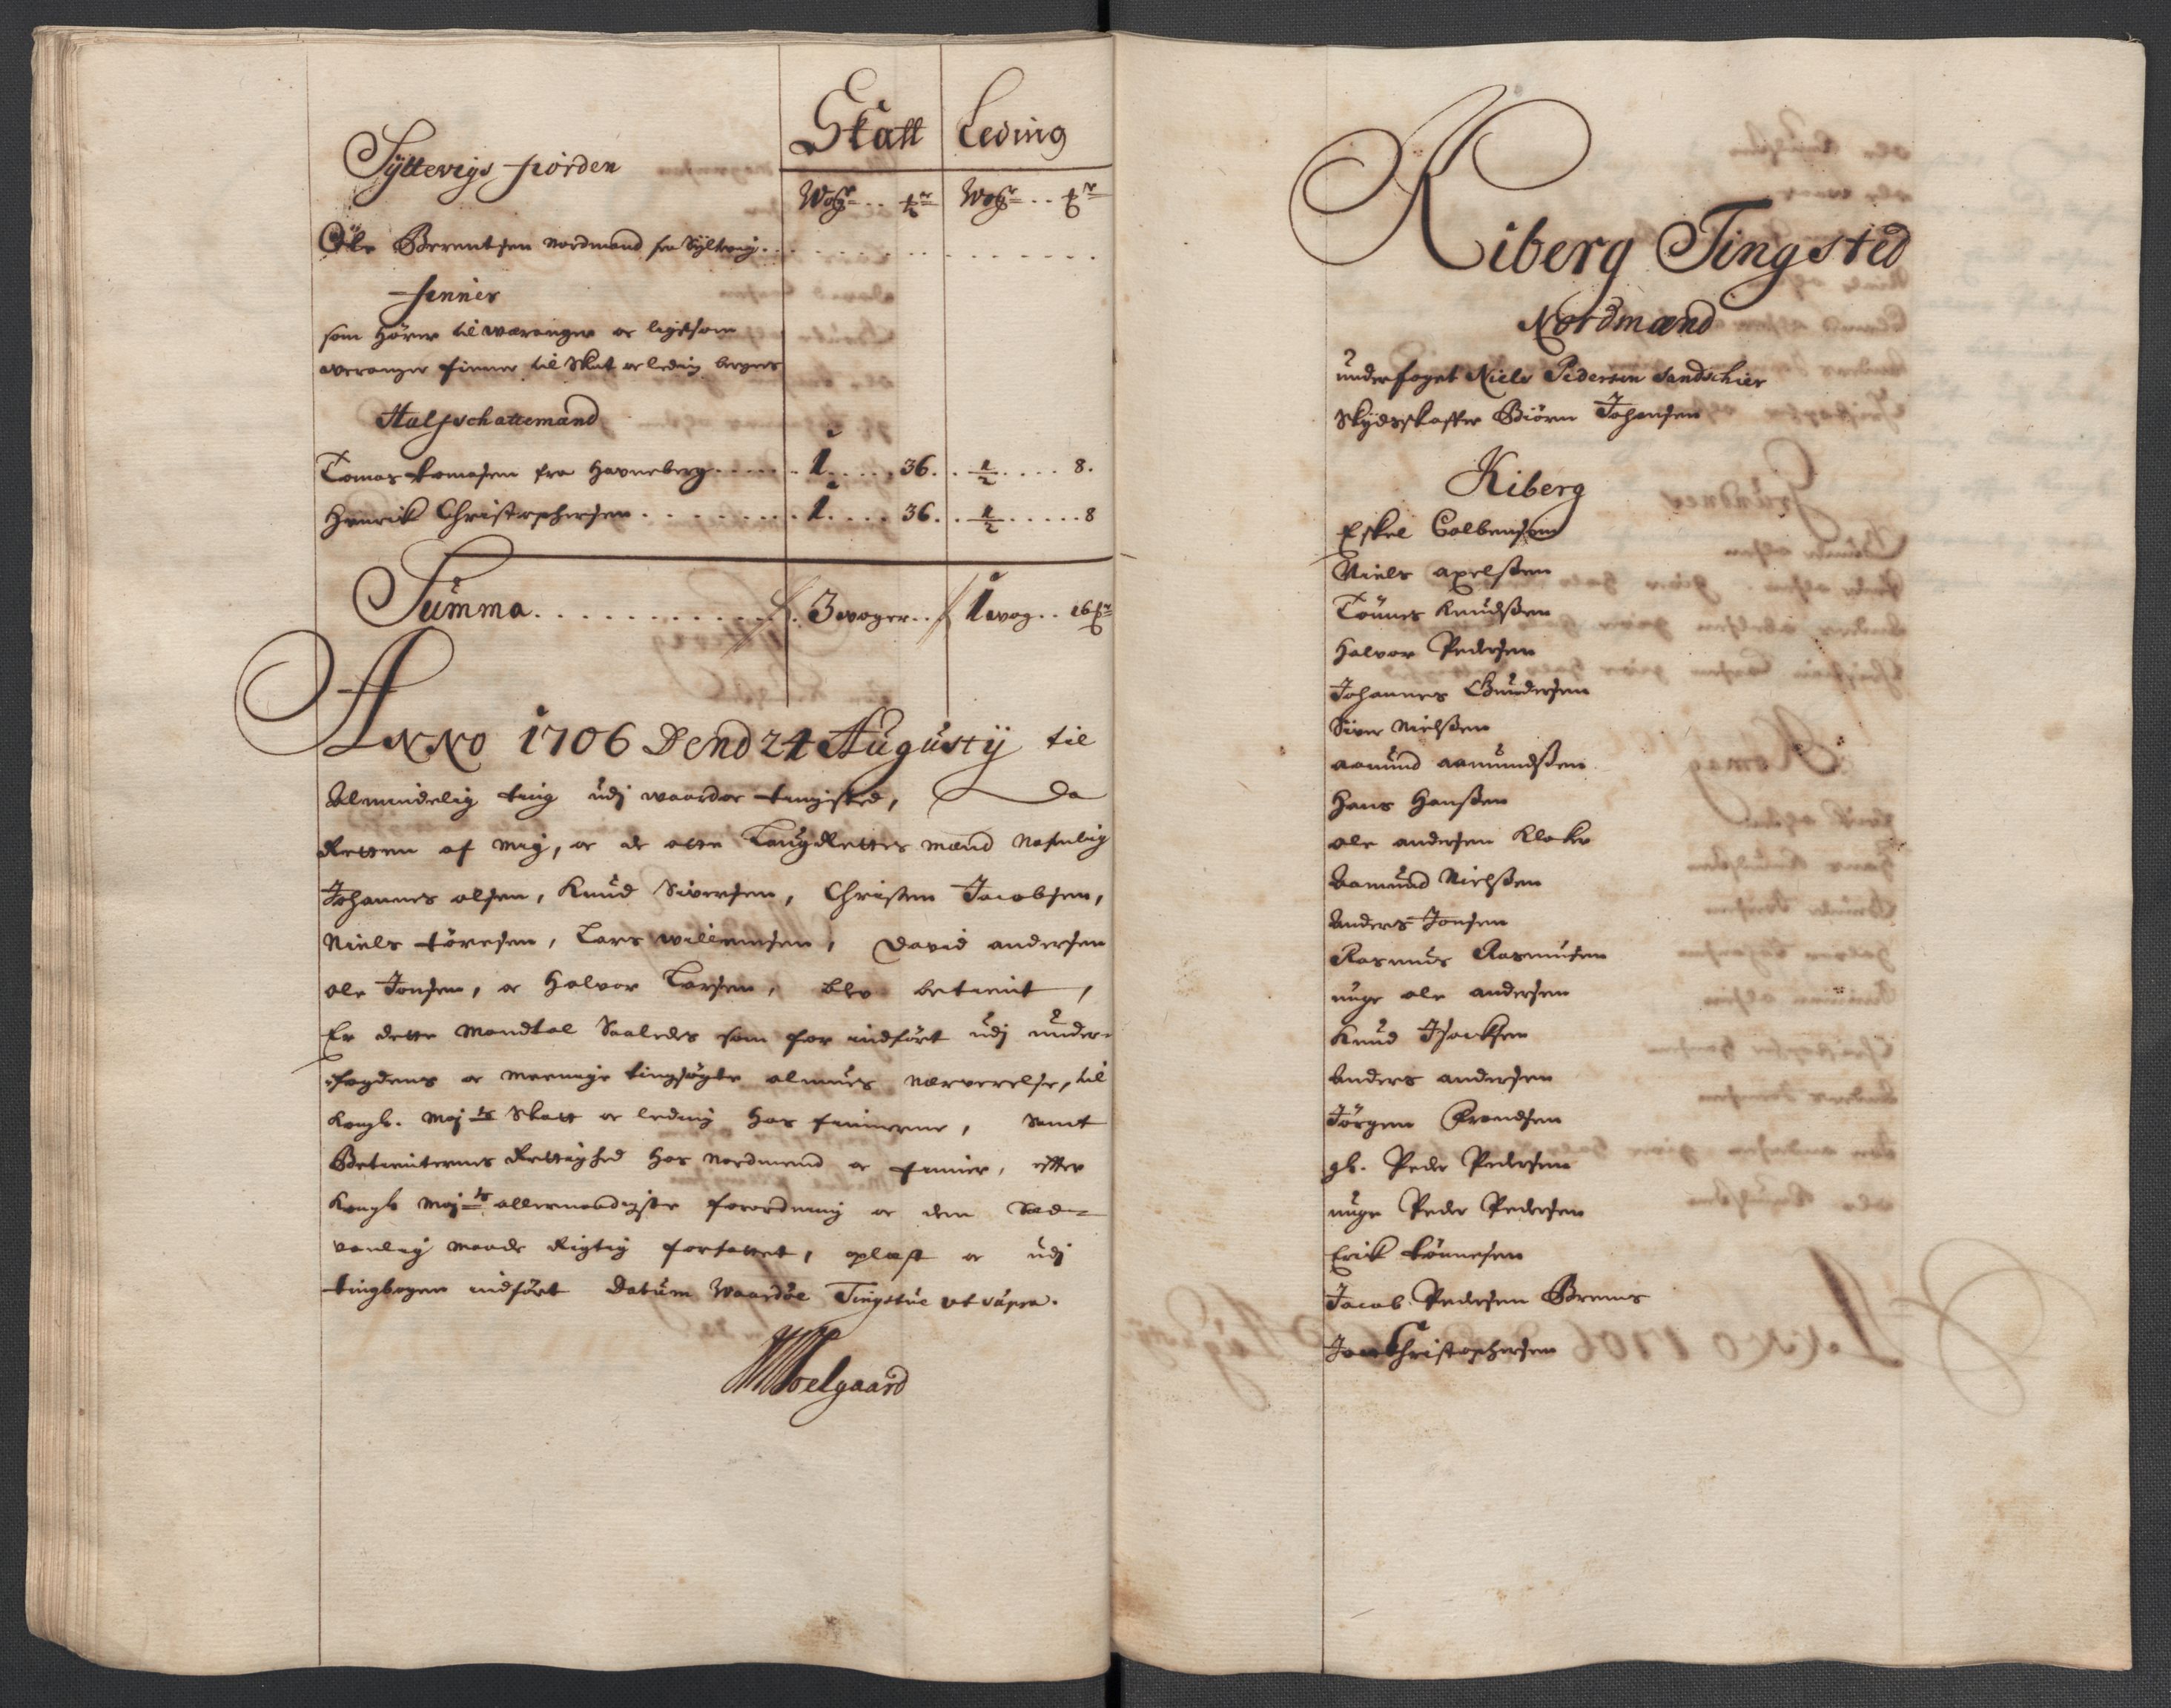 Skatt Leding
Syltevigs fiorden
Wog.. ℔r Wog.. ℔r
Ole Berentsen Nordmand fra Syltevig..
finner
som hører til waranger oc ligesom
waranger finner til Skat oc leding
Halfschattemand
Tomas tomasen fra Havneberg..... 1..... 36. . ½..... 8.
Henrik Christophersen........ 1..... 36. . ½..... 8
Summa............ 3 woger.. 1 wog.. 16 ℔r
ANNO 1706 Dend 24 Augusty til
Almindelig ting udj waardøe tingsted, Da
Retten af mig, oc de otte LaugRettes mænd Nafnlig
Johannes olsen, Knud Siversen, Christen Jacobsen,
Niels töresen, Lars willumsen, David andersen
ole Jonsen, oc Halvor Larsen, blev betient,
Er dette Mandtal Saaledes som for indført udj under-
fogdens oc meenige tingsøgte almues nærverelse, til
Kongl. Maj ts Skatt oc leding hos finnerne, Samt
Betienternes Rettighed hos Nordmend oc finner, efter
Kongl Maj ts allernaadigste forordning oc den Sæd-
vanlig maade Rigtig forfattet, oplæst oc udj
tingbogen indført Datum Waardøe Tingstue ut supra.
Moelgaard
Kiberg Tingsted
Nordmænd
underfoget Niels Pedersen Sandschier
Skydsskaffer Biörn Johansen
Kiberg
Eskel Colbensen
Niels axelsen
Tönnes Knudsen
Halvor Pedersen
Johannes Gundersen
Siver Nielsen
aamund aamundsen
Hans Hansen
ole andersen Klokr
Aamund Nielsen
Anders Jonsen
Rasmus Rasmusen
unge ole andersen
Knud Isacksen
Anders andersen
Jörgen Frandsen
gl. Peder Pedersen
unge Peder Pedersen
Erik tönnesen
Jacob Pedersen Brems
Jon Christophersen